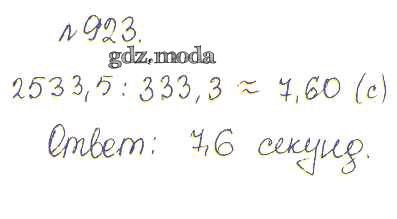 №923.
gdz.moda
2533,5 : 333,3 ≈ 7,60 (с)
Ответ: 7,6 секунд.